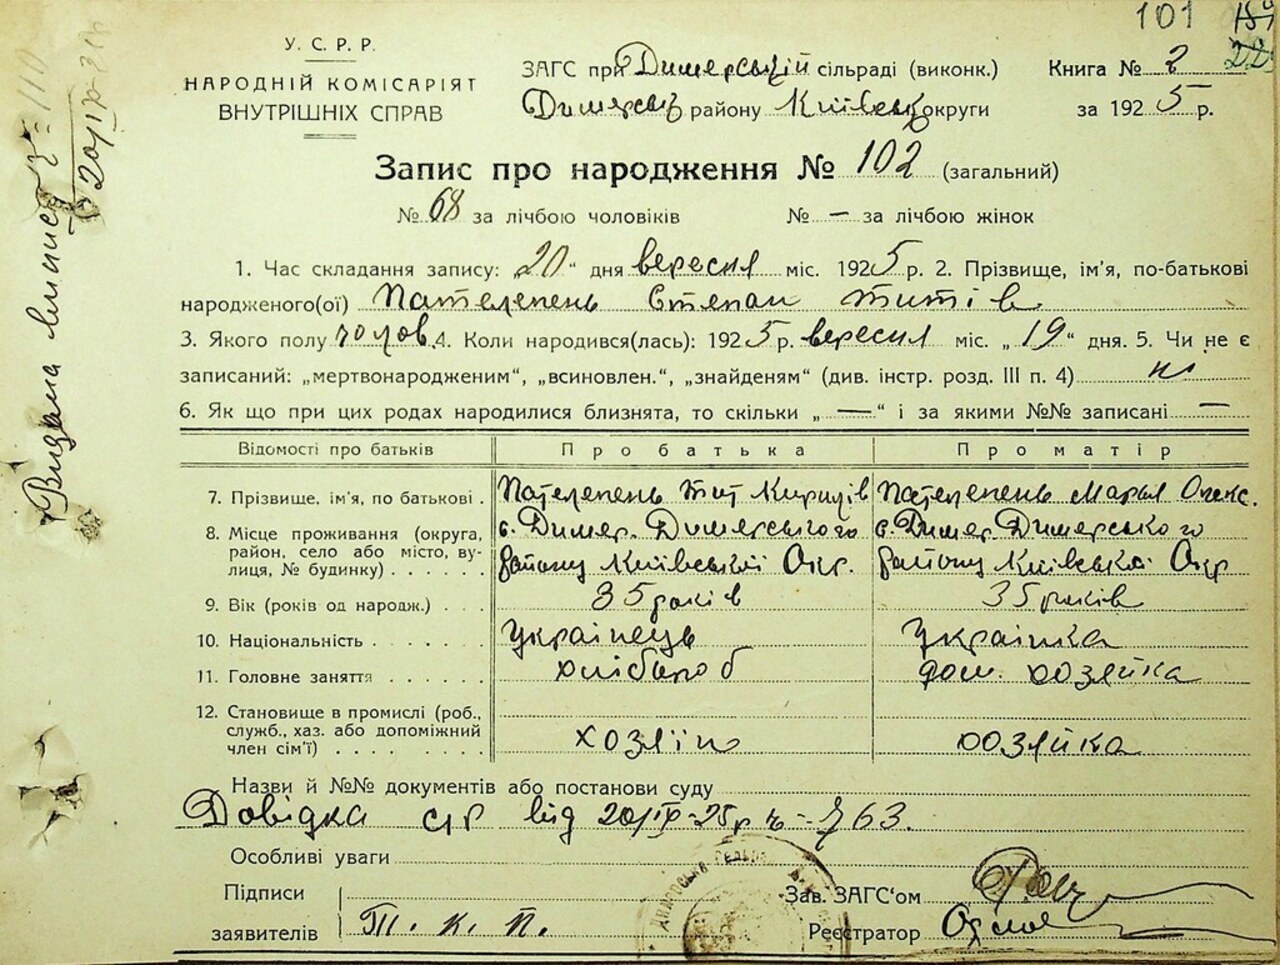 101
У. С. Р. Р.
НАРОДНІЙ КОМІСАРІЯТ
ВНУТРІШНІХ СПРАВ
ЗАГС при Димерській сільраді (виконк.)
Димерськ району Київськ округи
Книга № 2 22
за 1925 р.
Запис про народження № 102 (загальний)
№ 68 за лічбою чоловіків № — за лічбою жінок
1. Час складання запису: „20“ дня вересня міс. 1925 р. 2. Прізвище, ім'я, по-батькові
народженого(ої) Пателепень Степан Титів
3. Якого полу чолов. 4. Коли народився(лась): 1925 р. вересня міс. „19“ дня. 5. Чи не є
записаний: „мертвонародженим“, „всиновлен.“, „знайденям“ (див. інстр. розд. III п. 4) ні
6. Як що при цих родах народилися близнята, то скільки „—“ і за якими №№ записані —
Відомості про батьків Про батька Про матір
7. Прізвище, ім'я, по батькові . Пателепень Тит Кирилів Пателепень Марья Олекс.
8. Місце проживання (округа, район, село або місто, вулиця, № будинку) . . . . . .
с. Димер. Димерського с. Димер. Димерського
району Київської Окр. району Київської Окр
9. Вік (років од народж.) . . . 35 років 35 років
10. Національність . . . . . . Українець Українка
11. Головне заняття . . . . . . хлібороб дом. хозяйка
12. Становище в промислі (роб., служб., хаз. або допоміжний член сім'ї) . . . . . . . .
хозяїн хозяйка
Назви й №№ документів або постанови суду
Довідка с/р від 20/IX-25р № 763.
Особливі уваги
Підписи
заявителів Т. К. П.
Зав. ЗАГС'ом
Реєстратор
Видана выпись